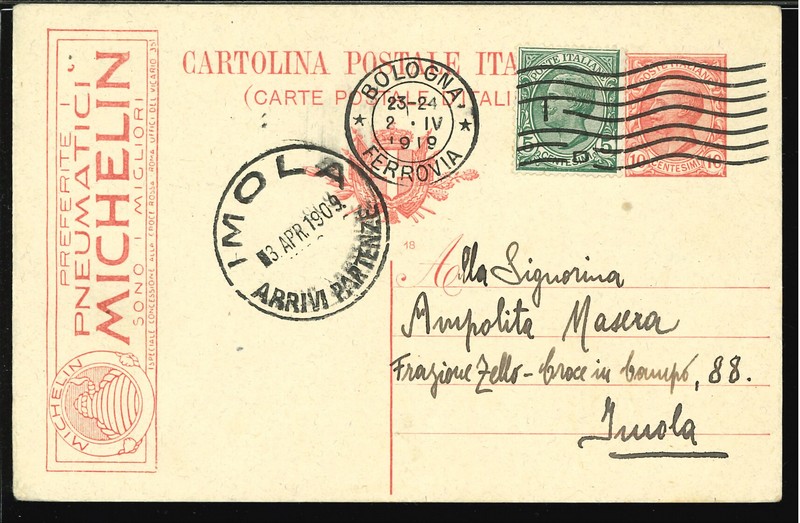 PREFERITE I
PNEUMATICI
MICHELIN
SONO I MIGLIORI
(SPECIALE CONCESSIONE ALLA CROCE ROSSA ROMA UFFICI DEL VICARIO 35)
MICHELIN
CARTOLINA POSTALE ITA
(CARTE POSTALE D'ITALI
BOLOGNA
23-24
2 · IV
1919
FERROVIA
POSTE ITALIANE
5 5
CENTESIMI
POSTE ITALIANE
10 CENTESIMI 10
IMOLA
3 APR. 1909
ARRIVI PARTENZE
18
Alla Signorina
Ampolita Masera
Frazione Zello - Croce in Campo, 88.
Imola